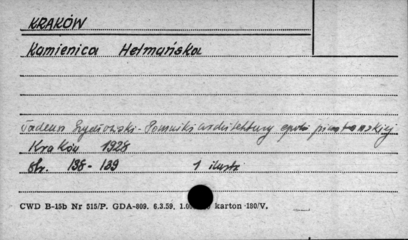 KRAKÓW
Kamienica Hetmańska
Tadeusz Szydłowski - Pomniki architektury epoki piastowskiej
Kraków 1928
str. 138-139 1 ilustr.
CWD B-15b Nr 515/P. GDA-809. 6.3.59. karton 180/V.